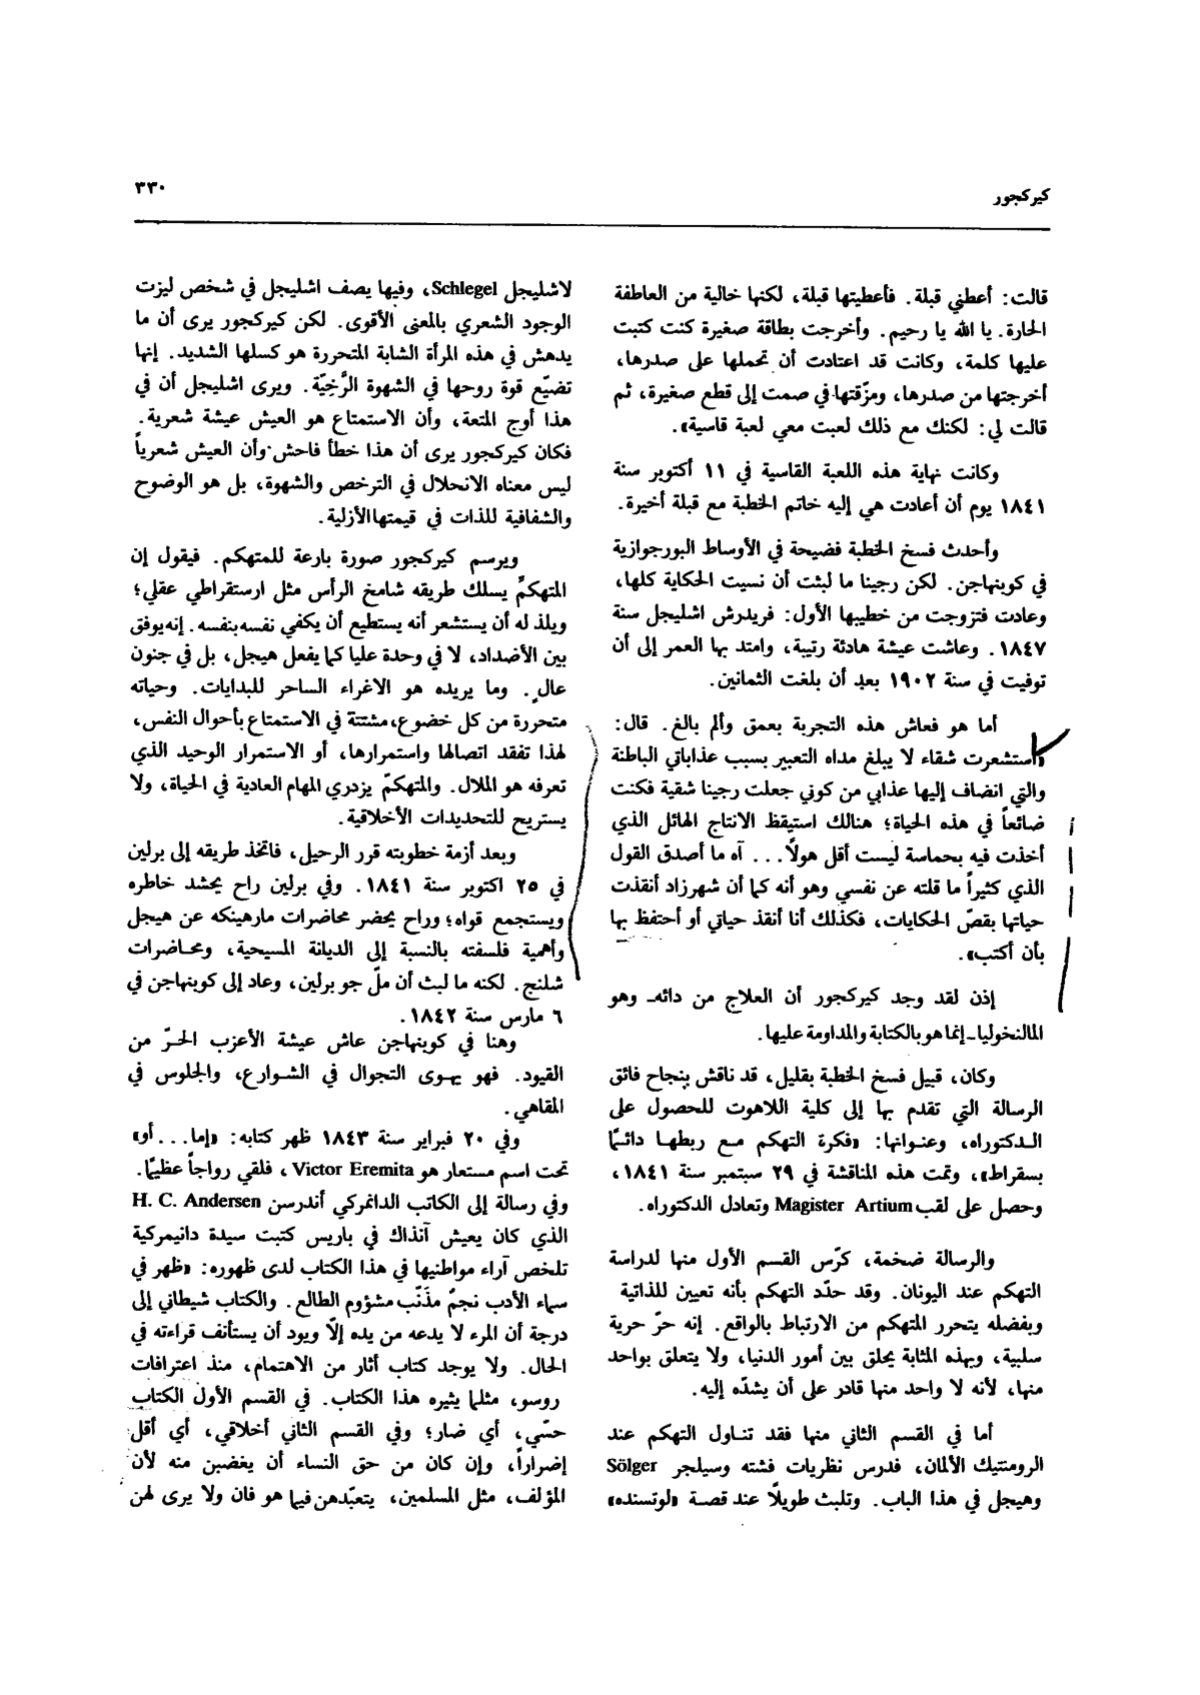 كيركجور
٣٣٠
قالت: أعطني قبلة. فأعطيتها قبلة، لكنها خالية من العاطفة
الحارة. يا الله يا رحيم. وأخرجت بطاقة صغيرة كنت كتبت
عليها كلمة، وكانت قد اعتادت أن تحملها على صدرها،
أخرجتها من صدرها، ومزّقتها في صمت إلى قطع صغيرة، ثم
قالت لي: لكنك مع ذلك لعبت معي لعبة قاسية».
وكانت نهاية هذه اللعبة القاسية في ١١ أكتوبر سنة
١٨٤١ يوم أن أعادت هي إليه خاتم الخطبة مع قبلة أخيرة.
وأحدث فسخ الخطبة فضيحة في الأوساط البورجوازية
في كوبنهاجن. لكن رجينا ما لبثت أن نسيت الحكاية كلها،
وعادت فتزوجت من خطيبها الأول: فريدرش اشليجل سنة
١٨٤٧. وعاشت عيشة هادئة رتيبة، وامتد بها العمر إلى أن
توفيت في سنة ١٩٠٢ بعد أن بلغت الثمانين.
أما هو فعاش هذه التجربة بعمق وألم بالغ. قال:
«استشعرت شقاء لا يبلغ مداه التعبير بسبب عذاباتي الباطنة
والتي انضاف إليها عذابي من كوني جعلت رجينا شقية فكنت
ضائعاً في هذه الحياة؛ هنالك استيقظ الانتاج الهائل الذي
أخذت فيه بحماسة ليست أقل هولاً... آه ما أصدق القول
الذي كثيراً ما قلته عن نفسي وهو أنه كما أن شهرزاد أنقذت
حياتها بقصّ الحكايات، فكذلك أنا أنقذ حياتي أو أحتفظ بها
بأن أكتب».
إذن لقد وجد كيركجور أن العلاج من دائه ـ وهو
المالنخوليا ـ إنما هو بالكتابة والمداومة عليها.
وكان، قبيل فسخ الخطبة بقليل، قد ناقش بنجاح فائق
الرسالة التي تقدم بها إلى كلية اللاهوت للحصول على
الدكتوراه، وعنوانها: «فكرة التهكم مع ربطها دائماً
بسقراط»، وتمت هذه المناقشة في ٢٩ سبتمبر سنة ١٨٤١،
وحصل على لقب Magister Artium وتعادل الدكتوراه.
والرسالة ضخمة، كرّس القسم الأول منها لدراسة
التهكم عند اليونان. وقد حدّد التهكم بأنه تعيين للذاتية
وبفضله يتحرر المتهكم من الارتباط بالواقع. إنه حرّ حرية
سلبية، وبهذه المثابة يحلق بين أمور الدنيا، ولا يتعلق بواحد
منها، لأنه لا واحد منها قادر على أن يشدّه إليه.
أما في القسم الثاني منها فقد تناول التهكم عند
الرومنتيك الألمان، فدرس نظريات فشته وسيلجر Sölger
وهيجل في هذا الباب. وتلبث طويلاً عند قصة «لوتسنده»
لاشليجل Schlegel، وفيها يصف اشليجل في شخص ليزت
الوجود الشعري بالمعنى الأقوى. لكن كيركجور يرى أن ما
يدهش في هذه المرأة الشابة المتحررة هو كسلها الشديد. إنها
تضيّع قوة روحها في الشهوة الرَّخِيّة. ويرى اشليجل أن في
هذا أوج المتعة، وأن الاستمتاع هو العيش عيشة شعرية.
فكان كيركجور يرى أن هذا خطأ فاحش وأن العيش شعرياً
ليس معناه الانحلال في الترخص والشهوة، بل هو الوضوح
والشفافية للذات في قيمتها الأزلية.
ويرسم كيركجور صورة بارعة للمتهكم. فيقول إن
المتهكمّ يسلك طريقه شامخ الرأس مثل ارستقراطي عقلي؛
ويلذ له أن يستشعر أنه يستطيع أن يكفي نفسه بنفسه. إنه يوفق
بين الأضداد، لا في وحدة عليا كما يفعل هيجل، بل في جنون
عالٍ. وما يريده هو الاغراء الساحر للبدايات. وحياته
متحررة من كل خضوع، مشتتة في الاستمتاع بأحوال النفس،
لهذا تفقد اتصالها واستمرارها، أو الاستمرار الوحيد الذي
تعرفه هو الملال. والمتهكمّ يزدري المهام العادية في الحياة، ولا
يستريح للتحديدات الأخلاقية.
وبعد أزمة خطوبته قرر الرحيل، فاتخذ طريقه إلى برلين
في ٢٥ اكتوبر سنة ١٨٤١. وفي برلين راح يحشد خاطره
ويستجمع قواه؛ وراح يحضر محاضرات مارهينكه عن هيجل
وأهمية فلسفته بالنسبة إلى الديانة المسيحية، ومحاضرات
شلنج. لكنه ما لبث أن ملّ جو برلين، وعاد إلى كوبنهاجن في
٦ مارس سنة ١٨٤٢.
وهنا في كوبنهاجن عاش عيشة الأعزب الحرّ من
القيود. فهو يهوى التجوال في الشوارع، والجلوس في
المقاهي.
وفي ٢٠ فبراير سنة ١٨٤٣ ظهر كتابه: «إما... أو»
تحت اسم مستعار هو Victor Eremita، فلقي رواجاً عظيماً.
وفي رسالة إلى الكاتب الدانمركي أندرسن H. C. Andersen
الذي كان يعيش آنذاك في باريس كتبت سيدة دانيمركية
تلخص آراء مواطنيها في هذا الكتاب لدى ظهوره: «ظهر في
سماء الأدب نجمّ مذَنّب مشؤوم الطالع. والكتاب شيطاني إلى
درجة أن المرء لا يدعه من يده إلّا ويود أن يستأنف قراءته في
الحال. ولا يوجد كتاب أثار من الاهتمام، منذ اعترافات
روسو، مثلما يثيره هذا الكتاب. في القسم الأول الكتاب
حسّي، أي ضار؛ وفي القسم الثاني أخلاقي، أي أقل
إضراراً، وإن كان من حق النساء أن يغضبن منه لأن
المؤلف، مثل المسلمين، يتعبّدهن فيما هو فان ولا يرى لهن